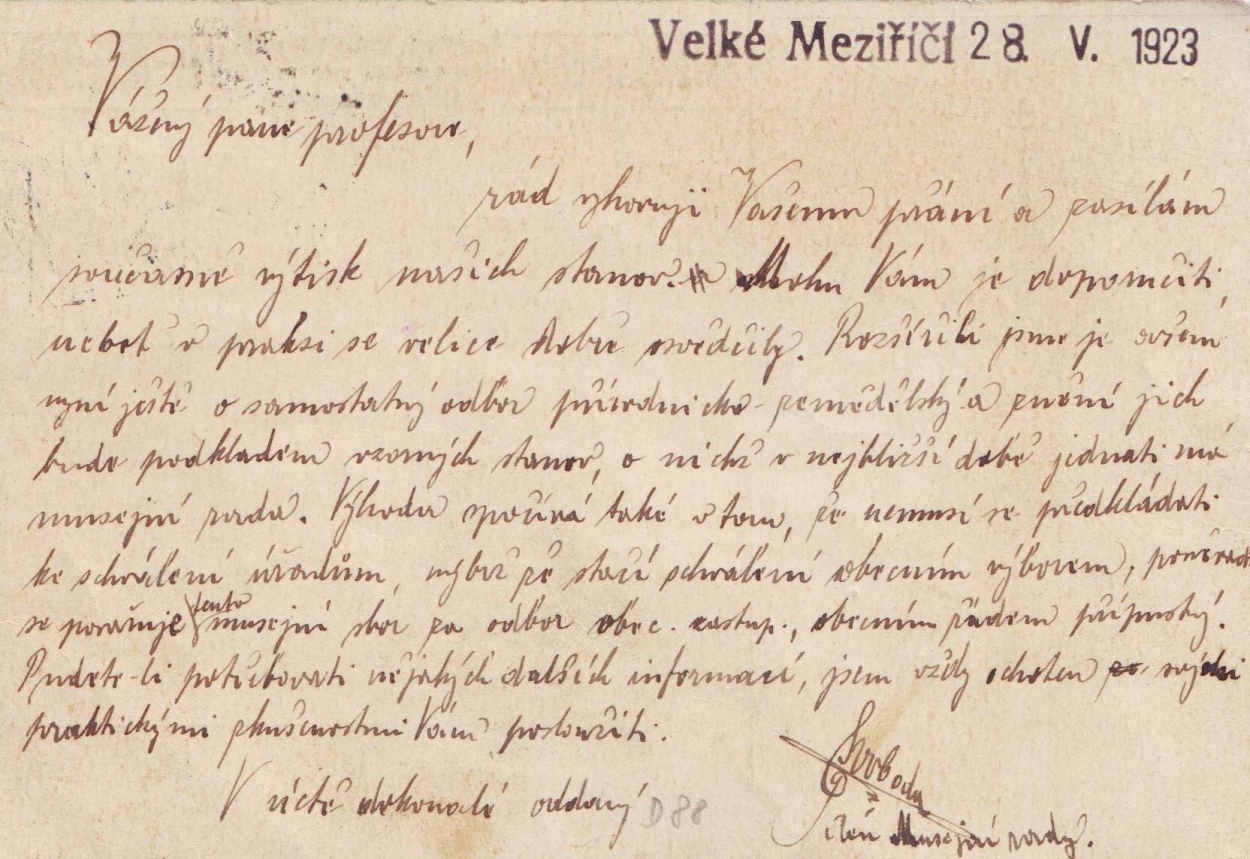 Velké Meziříčí 28. V. 1923
Vážený pane profesore,
rád vyhovuji Vašemu přání a zasílám
současně výtisk našich stanov. Mohu Vám je doporučiti,
neboť v praksi se velice dobře osvědčily. Rozšířili jsme je ovšem
nyní ještě o samostatný odbor přírodnicko-zemědělský a znění jich
bude podkladem vzorných stanov, o nichž v nejbližší době jednati má
musejní rada. Výhoda spočívá také v tom, že nemusí se předkládati
ke schválení úřadům, nýbrž že stačí schválení obecním výborem, poněvadž
se považuje tento musejní sbor za odbor obec. zastup., obecním řádem přípustný.
Budete-li potřebovati nějakých dalších informací, jsem vždy ochoten svými
praktickými zkušenostmi Vám posloužiti.
V úctě dokonalé oddaný
Svoboda
člen Musejní rady.
D 88